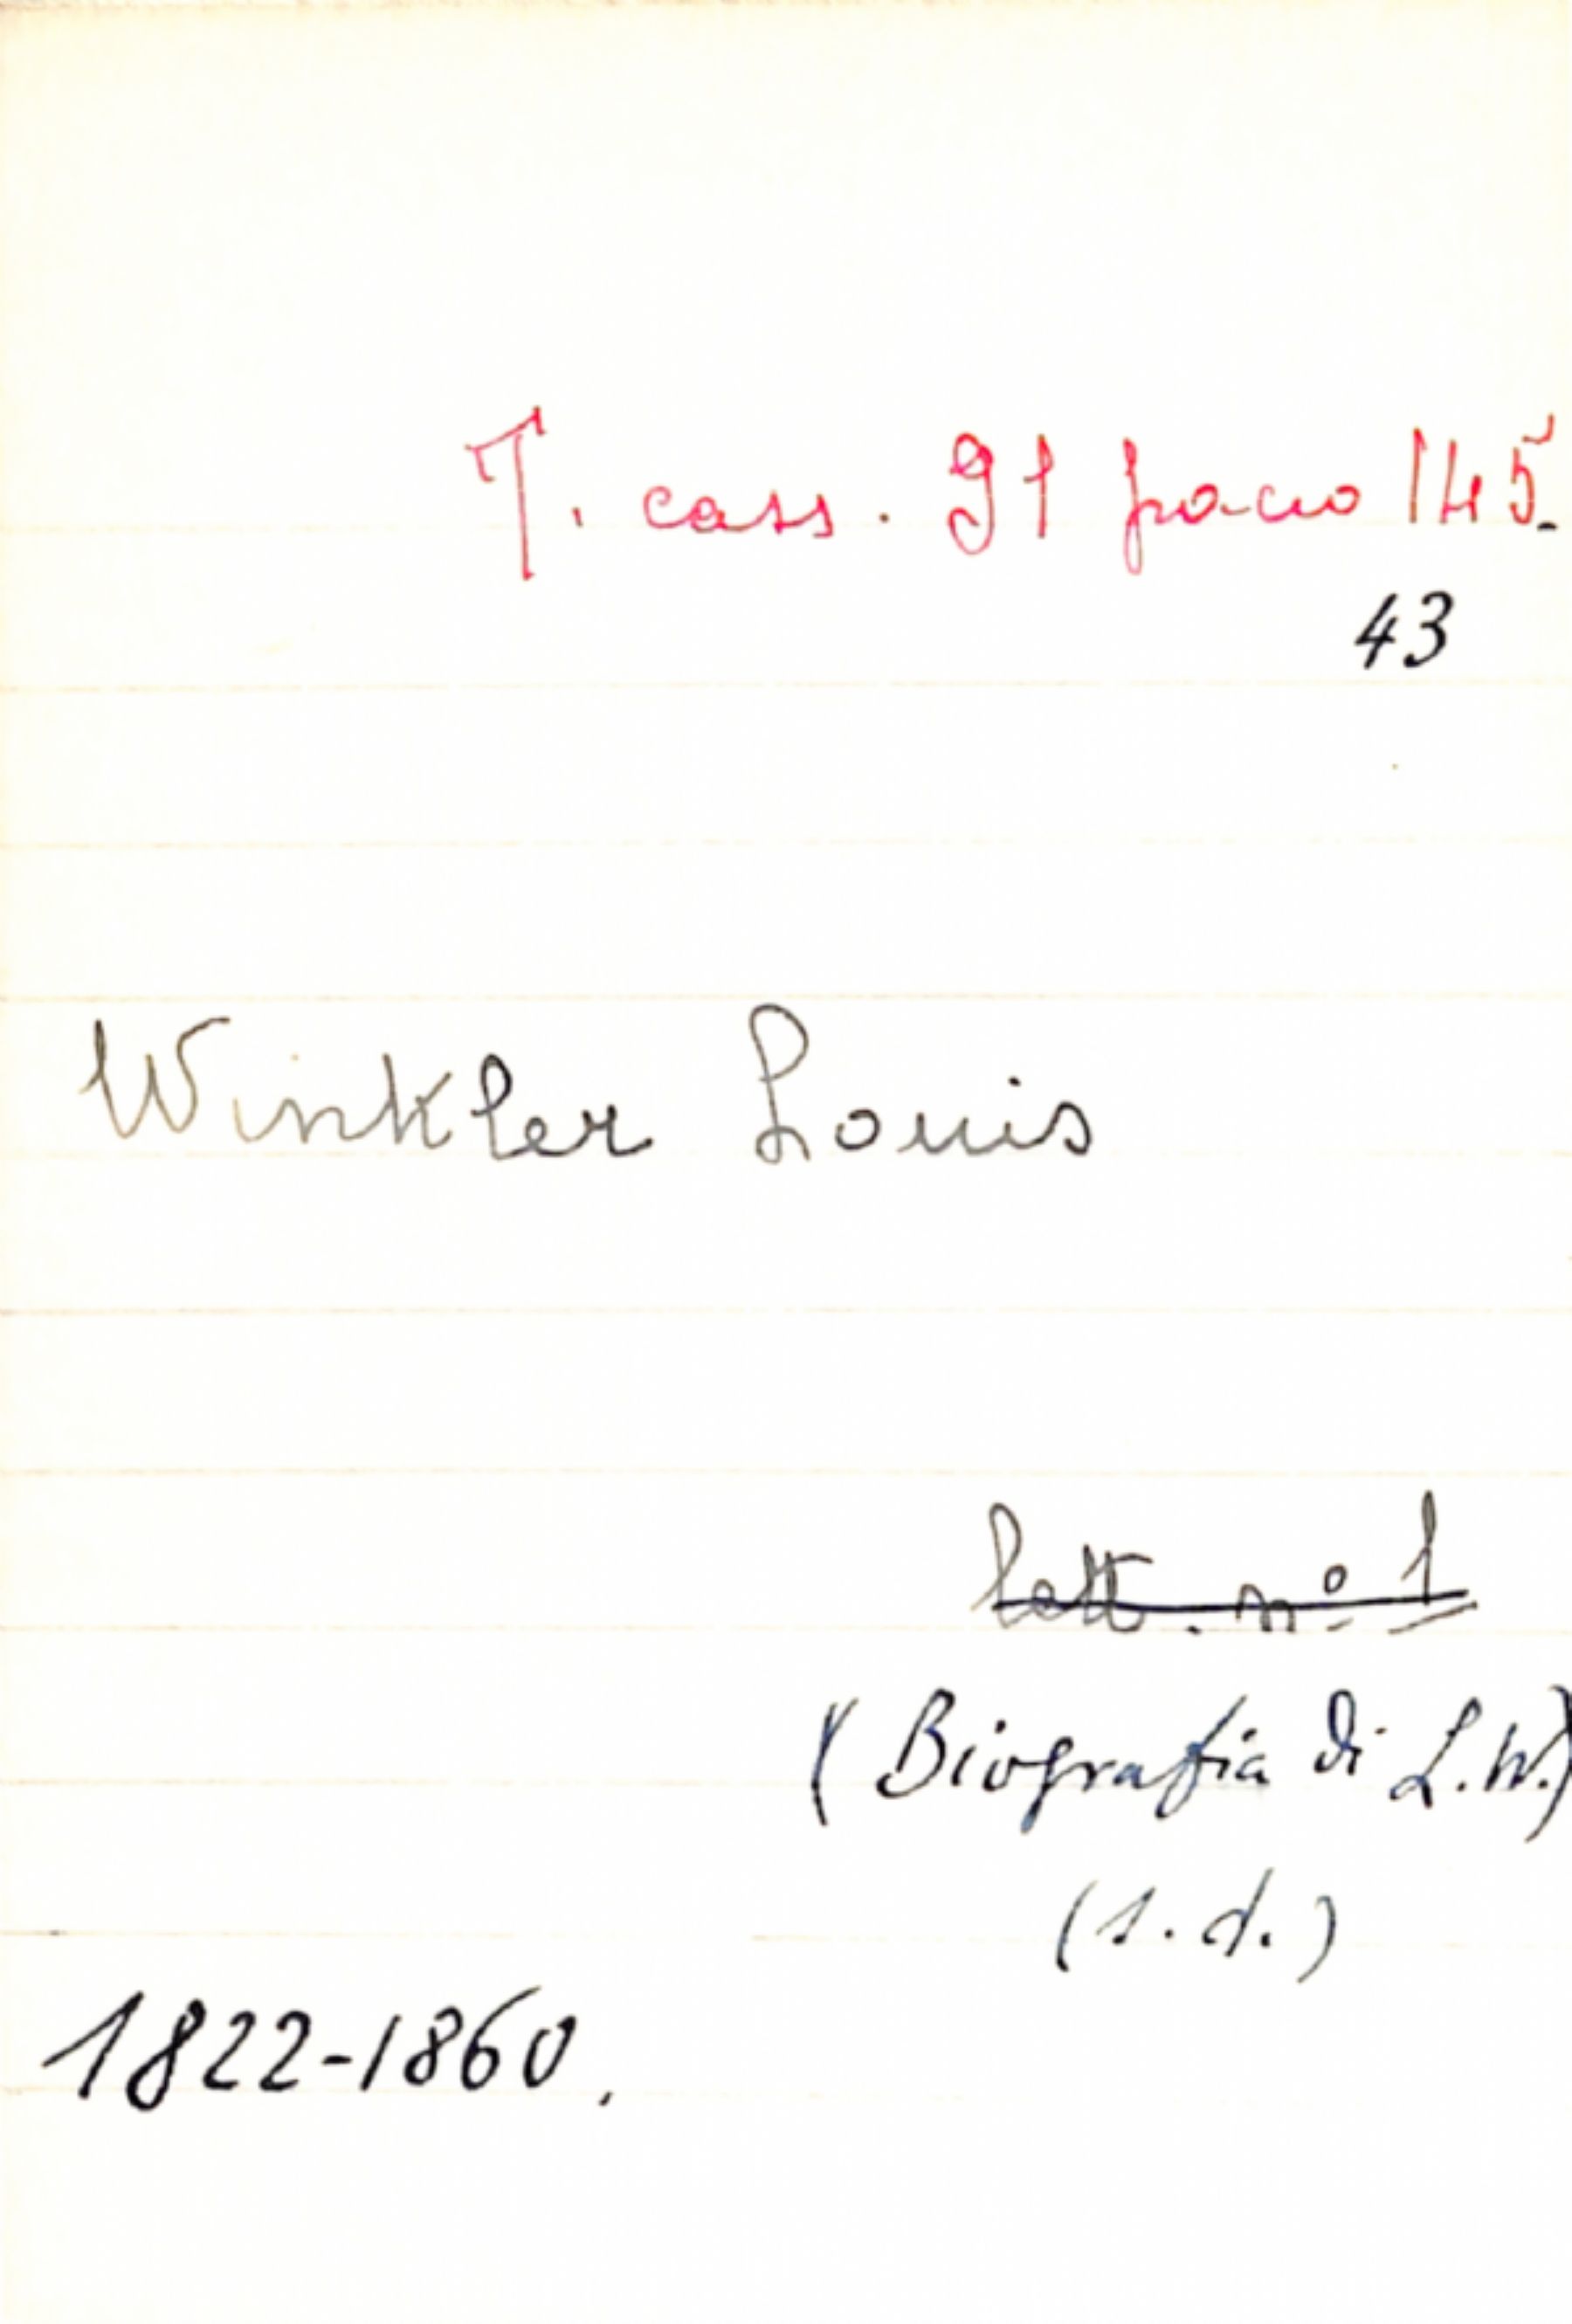 T. cass. 91 pacco 145.
43
Winkler Louis
lett. nº 1
(Biografia di L.W.)
(s.d.)
1822-1860.